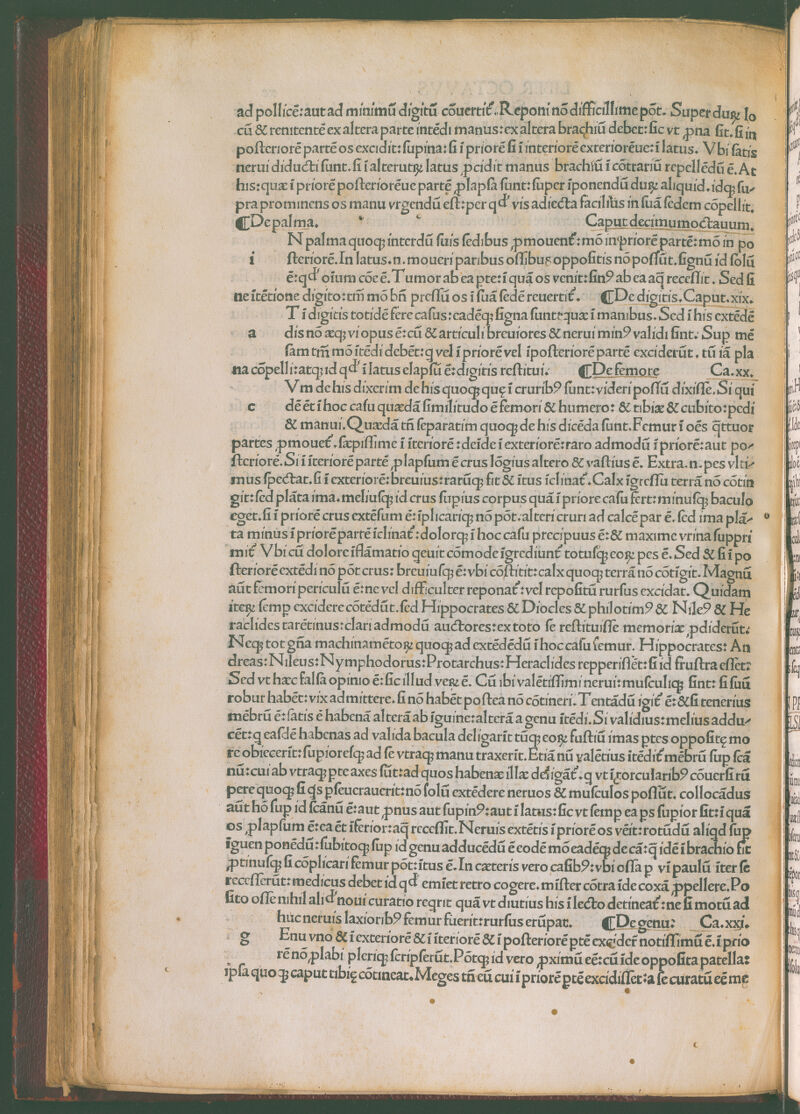 ad pollicē:aut ad minimū digitū cōuertit᷑.Reponi nō difficillime pōt. Super duꝝ lo
cū & renitentē ex altera parte intēdi manus:ex altera brachiū debet:sic vt ꝓna sit.si in
posteriorē partē os excidit:supina:si ī priorē si ī interiorē exterioreue:ī latus. Vbi satis
nerui diducti sunt.si ī alterutꝝ latus ꝓcidit manus brachiū ī cōtrariū repellēdū ē.At
his:quæ ī priorē posterioreue partē ꝓlapsa sunt:super īponendū duꝝ aliquid.idqꝫ su⸗
pra prominens os manu vrgendū est:per qd' vis adiecta facilius in suā sedem cōpellit.
¶De palma. Caput decimumoctauum.
N palma quoqꝫ interdū suis sedibus ꝓmouent᷑:mō in priorē partē:mō in po
i steriorē.In latus.n.moueri paribus ossibus oppositis nō possūt.signū id solū
ē:qd' oīum cōe ē.Tumor ab ea pte:ī quā os venit:sinꝰ ab ea aq̄ recessit. Sed si
ne ītētione digito:tm̄ mō bn̄ pressū os ī suā sedē reuertit᷑. ¶De digitis.Caput.xix.
T ī digitis totidē fere casus:eadēqꝫ signa sunt:quæ ī manibus.Sed ī his extēdē
a dis nō æqꝫ vi opus ē:cū & articuli breuiores & nerui minꝰ validi sint. Sup mē
sam tm̄ mō ītēdi debēt:q vel ī priorē vel īposteriorē partē exciderūt. tū iā pla
na cōpelli:atqꝫ id qd' ī latus elapsū ē:digitis restitui. ¶De femore Ca.xx.
Vm de his dixerim de his quoqꝫ quę ī cruribꝰ sunt:videri possū dixisse.Si qui
c dē ēt ī hoc casu quædā similitudo ē femori & humero: & tibiæ & cubito:pedi
& manui.Quædā tn̄ separatim quoqꝫ de his dicēda sunt.Femur ī oēs q̄ttuor
partes ꝓmouet᷑.sæpissime ī īteriorē:deīde ī exteriorē:raro admodū ī priorē:aut po⸗
steriorē.Si ī īteriorē partē ꝓlapsum ē crus lōgius altero & vastius ē. Extra.n.pes vlti⸗
mus spectat.si ī exteriorē:breuius:rarūqꝫ fit & ītus īclinat᷑.Calx īgressu terrā nō cōtin
git:sed plāta ima.meliusqꝫ id crus supius corpus quā ī priore casu fert:minusqꝫ baculo
eget.si ī priorē crus extēsum ē:īplicariqꝫ nō pōt.alteri cruri ad calcē par ē.sed ima plā⸗
ta minus ī priorē partē īclinat᷑:dolorqꝫ ī hoc casu precipuus ē:& maxime vrina suppri
mit᷑ Vbi cū dolore īflāmatio qeuit cōmode īgrediunt᷑ totusqꝫ eoꝝ pes ē.Sed & si ī po
steriorē extēdi nō pōt crus: breuiusqꝫ ē:vbi cōstitit:calx quoqꝫ terrā nō cōtigit.Magnū
aūt femori periculū ē:ne vel difficulter reponat᷑:vel repositū rursus excidat. Quidam
iteꝝ semp excidere cōtēdūt.sed Hippocrates & Diocles & philotimꝰ & Nileꝰ & He
raclides tarētinus:clari admodū auctores:ex toto se restituisse memoriæ ꝓdiderūt:
Neqꝫ tot gn̄a machinamētoꝝ quoqꝫ ad extēdēdū ī hoc casu femur. Hippocrates: An
dreas:Nileus:Nymphodorus:Protarchus:Heraclides repperissēt:si id frustra esset:
Sed vt hæc falsa opinio ē:sic illud veꝝ ē. Cū ibi valētissimi nerui:musculiqꝫ sint: si suū
robur habēt:vix admittere.si nō habēt postea nō cōtineri.Tentādū igit᷑ ē:& si tenerius
mēbrū ē:satis ē habenā alterā ab īguine:alterā a genu ītēdi.Si validius:melius addu⸗
cēt:q easdē habenas ad valida bacula deligarīt tūqꝫ eoꝝ fustiū imas ptes opposite mo
re obiecerīt:superioresqꝫ ad se vtraqꝫ manu traxerīt.Etiā nū valētius ītēdit᷑ mēbrū sup scā
nū:cui ab vtraqꝫ pte axes sūt:ad quos habenæ illæ deligāt᷑.q vt ī torcularibꝰ cōuersi rū
pere quoqꝫ si q̄s pseuerauerit:nō solū extēdere neruos & musculos possūt. collocādus
aūt hō sup id scānū ē:aut ꝓnus aut supinꝰ:aut ī latus:sic vt semp ea ps supior sit:ī quā
os ꝓlapsum ē:ea ēt īferior:aq̄ recessit.Neruis extētis ī priorē os vēit:rotūdū aliqd sup
īguen ponēdū:subitoqꝫ sup id genu adducēdū ē eodē mō eadēqꝫ de cā:q̄ idē ī brachio fit
ꝓtinusqꝫ si cōplicari femur pōt:ītus ē.In cæteris vero casibꝰ:vbi ossa p vī paulū īter se
recesserūt:medicus debet id qd' emīet retro cogere.mīster cōtra īde coxā ꝓpellere.Po
sito osse nihil alid' noui curatio reqrit quā vt diutius his ī lecto detineat᷑:ne si motū ad
huc neruis laxioribꝰ femur fuerit:rursus erūpat. ¶De genu: Ca.xxi.
g Enu vno & ī exteriorē & ī īteriorē & ī posteriorē ptē excīder᷑ notissimū ē.ī prio
rē nō ꝓlabi pleriqꝫ scripserūt.Pōtqꝫ id vero ꝓximū eē:cū īde opposita patella:
ipsa quoqꝫ caput tibię cōtineat.Meges tn̄ eū cui ī priorē ptē excidisset:a se curatū eē me